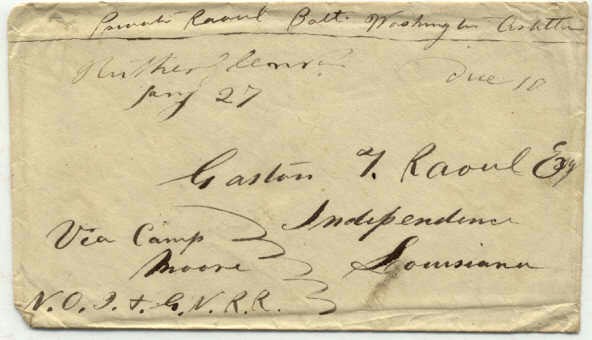 Private Raoul Batt. Washington Artillery
Rutherglen Va
Jany 27
Due 10
Gaston T. Raoul Esq
Independence
Louisiana
Via Camp
Moore
N. O. J. & G. N. R. R.